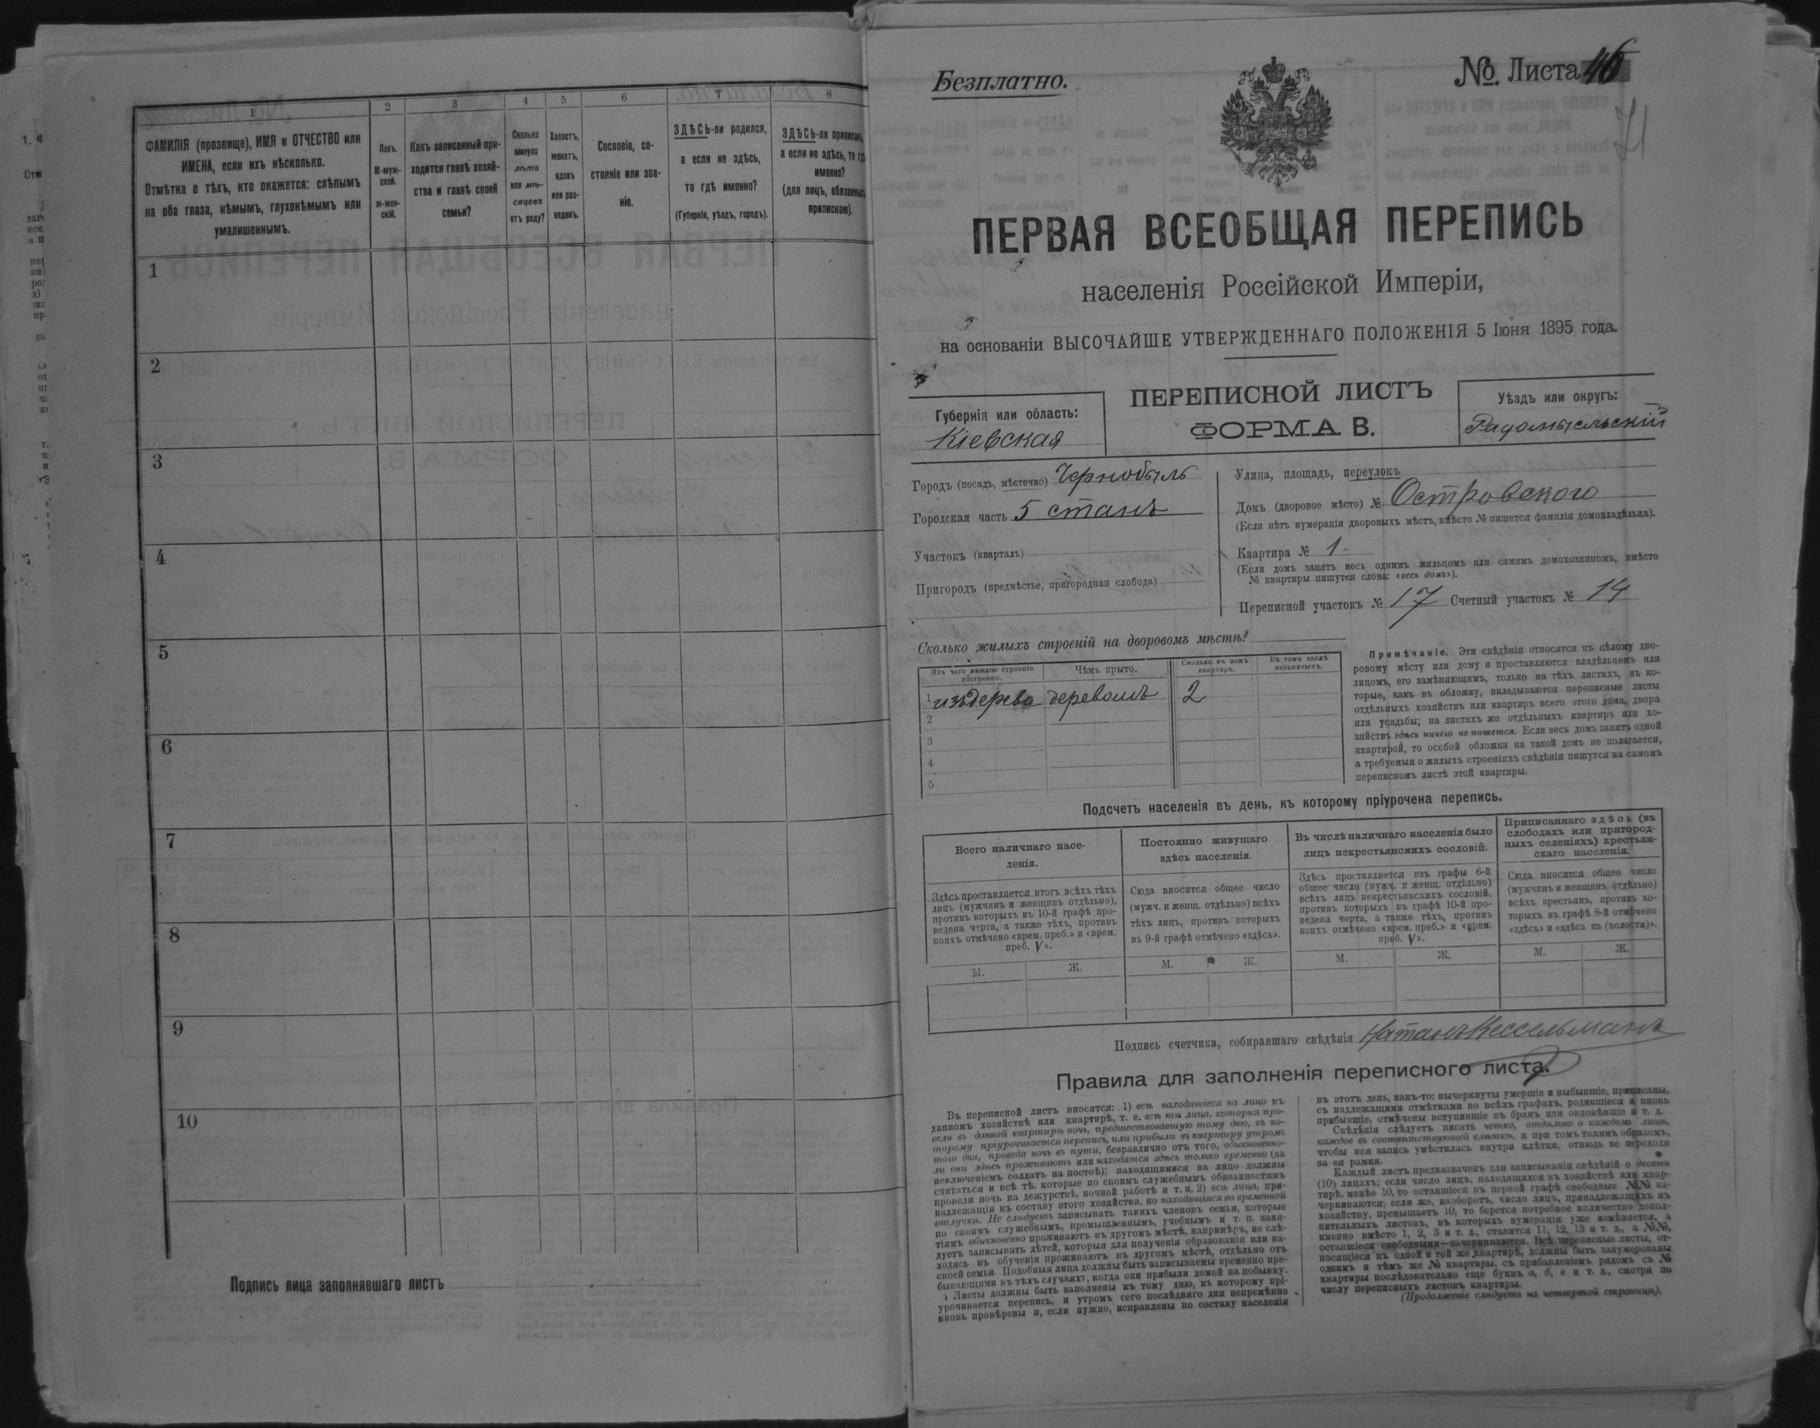 1
2
3
4
5
6
7
8
ФАМИЛІЯ (прозвище), ИМЯ и ОТЧЕСТВО или
ИМЕНА, если ихъ нѣсколько.
Отмѣтка о тѣхъ, кто окажется: слѣпымъ
на оба глаза, нѣмымъ, глухонѣмымъ или
умалишеннымъ.
Полъ.
М-муж-
ской.
ж-жен-
скій.
Какъ записанный при-
ходится главѣ хозяй-
ства и главѣ своей
семьи?
Сколько
минуло
лѣтъ
или мѣ-
сяцевъ
отъ роду?
Холостъ,
женатъ,
вдовъ
или раз-
веденъ.
Сословіе, со-
стояніе или зва-
ніе.
ЗДѢСЬ-ли родился,
а если не здѣсь,
то гдѣ именно?
(Губернія, уѣздъ, городъ).
ЗДѢСЬ-ли приписанъ,
а если не здѣсь, то гдѣ
именно?
(для лицъ, обязанныхъ
припискою).
1
2
3
4
5
6
7
8
9
10
Подпись лица заполнявшаго листъ
Безплатно.
№ Листа 46
ПЕРВАЯ ВСЕОБЩАЯ ПЕРЕПИСЬ
населенія Россійской Имперіи,
на основаніи ВЫСОЧАЙШЕ УТВЕРЖДЕННАГО ПОЛОЖЕНІЯ 5 Іюня 1895 года.
Губернія или область:
Кіевская
ПЕРЕПИСНОЙ ЛИСТЪ
ФОРМА В.
Уѣздъ или округъ:
Радомысльскій
Городъ (посадъ, мѣстечко) Чернобыль
Городская часть 5 станъ
Участокъ (кварталъ)
Пригородъ (предмѣстье, пригородная слобода)
Улица, площадь, переулокъ
Домъ (дворовое мѣсто) № Островского
(Если нѣтъ нумераціи дворовыхъ мѣстъ, вмѣсто № пишется фамилія домовладѣльца).
Квартира № 1.
(Если домъ занятъ весь однимъ жильцомъ или самимъ домохозяиномъ, вмѣсто
№ квартиры пишутся слова: «весь домъ»).
Переписной участокъ № 17 Счетный участокъ № 14
Сколько жилыхъ строеній на дворовомъ мѣстѣ?
Изъ чего каждое строеніе
построено.
Чѣмъ крыто.
Сколько въ немъ
квартиръ.
Въ томъ числѣ
незанятыхъ.
1 изъ дерева деревомъ 2
2
3
4
5
Примѣчаніе. Эти свѣдѣнія относятся къ цѣлому дво-
ровому мѣсту или дому и проставляются владѣльцемъ или
лицомъ, его замѣняющимъ, только на тѣхъ листахъ, въ ко-
торые, какъ въ обложку, вкладываются переписные листы
отдѣльныхъ хозяйствъ или квартиръ всего этого дома, двора
или усадьбы; на листахъ же отдѣльныхъ квартиръ или хо-
зяйствъ здѣсь ничего не пишется. Если весь домъ занятъ одной
квартирой, то особой обложки на такой домъ не полагается,
а требуемыя о жилыхъ строеніяхъ свѣдѣнія пишутся на самомъ
переписномъ листѣ этой квартиры.
Подсчетъ населенія въ день, къ которому пріурочена перепись.
Всего наличнаго насе-
ленія.
Постоянно живущаго
здѣсь населенія.
Въ числѣ наличнаго населенія было
лицъ некрестьянскихъ сословій.
Приписаннаго здѣсь (въ
слободахъ или пригород-
ныхъ селеніяхъ) крестьян-
скаго населенія.
Здѣсь проставляется итогъ всѣхъ тѣхъ
лицъ (мужчинъ и женщинъ отдѣльно),
противъ которыхъ въ 10-й графѣ про-
ведена черта, а также тѣхъ, противъ
коихъ отмѣчено «врем. преб.» и «врем.
преб. V».
Сюда вносится общее число
(мужч. и женщ. отдѣльно) всѣхъ
тѣхъ лицъ, противъ которыхъ
въ 9-й графѣ отмѣчено «здѣсь».
Здѣсь проставляется изъ графы 6-й
общее число (мужч. и женщ. отдѣльно)
всѣхъ лицъ некрестьянскихъ сословій,
противъ которыхъ въ графѣ 10-й про-
ведена черта, а также тѣхъ, противъ
коихъ отмѣчено «врем. преб.» и «врем.
преб. V».
Сюда вносится общее число
(мужчинъ и женщинъ отдѣльно)
всѣхъ крестьянъ, противъ ко-
торыхъ въ графѣ 8-й отмѣчено
«здѣсь» и «здѣсь къ (волости)».
М. Ж. М. Ж. М. Ж. М. Ж.
Подпись счетчика, собиравшаго свѣдѣнія Натанъ Кессельманъ
Правила для заполненія переписного листа.
Въ переписной листъ вносятся: 1) есѣ находящіеся на лицо въ
данномъ хозяйствѣ или квартирѣ, т. е. есѣ тѣ лица, которыя про-
вели въ данной квартирѣ ночь, предшествовавшую тому дню, къ ко-
торому пріурочивается перепись, или прибыли въ квартиру утромъ
того дня, проведя ночь въ пути, безразлично отъ того, обыкновенно-
ли они здѣсь проживаютъ или находятся здѣсь только временно (за
исключеніемъ солдатъ на постоѣ); находящимися на лицо должны
считаться и всѣ тѣ, которые по своимъ служебнымъ обязанностямъ
провели ночь на дежурствѣ, ночной работѣ и т. п. 2) есѣ лица, при-
надлежащія къ составу этого хозяйства, но находящіяся во временной
отлучкѣ. Не слѣдуетъ записывать такихъ членовъ семьи, которые
по своимъ служебнымъ, промышленнымъ, учебнымъ и т. п. заня-
тіямъ обыкновенно проживаютъ въ другомъ мѣстѣ, напримѣръ, не слѣ-
дуетъ записывать дѣтей, которыя для полученія образованія или на-
ходясь въ обученіи проживаютъ въ другомъ мѣстѣ, отдѣльно отъ
своей семьи. Подобныя лица должны быть записываемы временно пре-
бывающими въ тѣхъ случаяхъ, когда они прибыли домой на побывку.
Листы должны быть заполнены къ тому дню, къ которому прі-
урочивается перепись, и утромъ сего послѣдняго дня непремѣнно
вновь провѣрены и, если нужно, исправлены по составу населенія
въ этотъ день, какъ-то: вычеркнуты умершіе и выбывшіе, приписаны,
съ надлежащими отмѣтками во всѣхъ графахъ, родившіеся и вновь
прибывшіе, отмѣчены вступившіе въ бракъ или овдовѣвшіе и т. д.
Свѣдѣнія слѣдуетъ писать четко, отдѣльно о каждомъ лицѣ,
каждое въ соотвѣтствующей клѣткѣ, и при томъ такимъ образомъ,
чтобы вся запись умѣстилась внутри клѣтки, отнюдь не переходя
за ея рамки.
Каждый листъ предназначенъ для записыванія свѣдѣній о десяти
(10) лицахъ; если число лицъ, находящихся въ хозяйствѣ или квар-
тирѣ, менѣе 10, то оставшіеся въ первой графѣ свободные №№ за-
черкиваются; если же, наоборотъ, число лицъ, принадлежащихъ къ
хозяйству, превышаетъ 10, то берется потребное количество допол-
нительныхъ листовъ, въ которыхъ нумерація уже измѣняется, а
именно вмѣсто 1, 2, 3 и т. д., ставится 11, 12, 13 и т. д., а №№,
оставшіеся свободными—зачеркиваются. Всѣ переписные листы, от-
носящіеся къ одной и той же квартирѣ, должны быть занумерованы
однимъ и тѣмъ же № квартиры, съ прибавленіемъ рядомъ съ №
квартиры послѣдовательно еще буквъ а, б, в и т. д., смотря по
числу переписныхъ листовъ квартиры.
(Продолженіе слѣдуетъ на четвертой страницѣ).